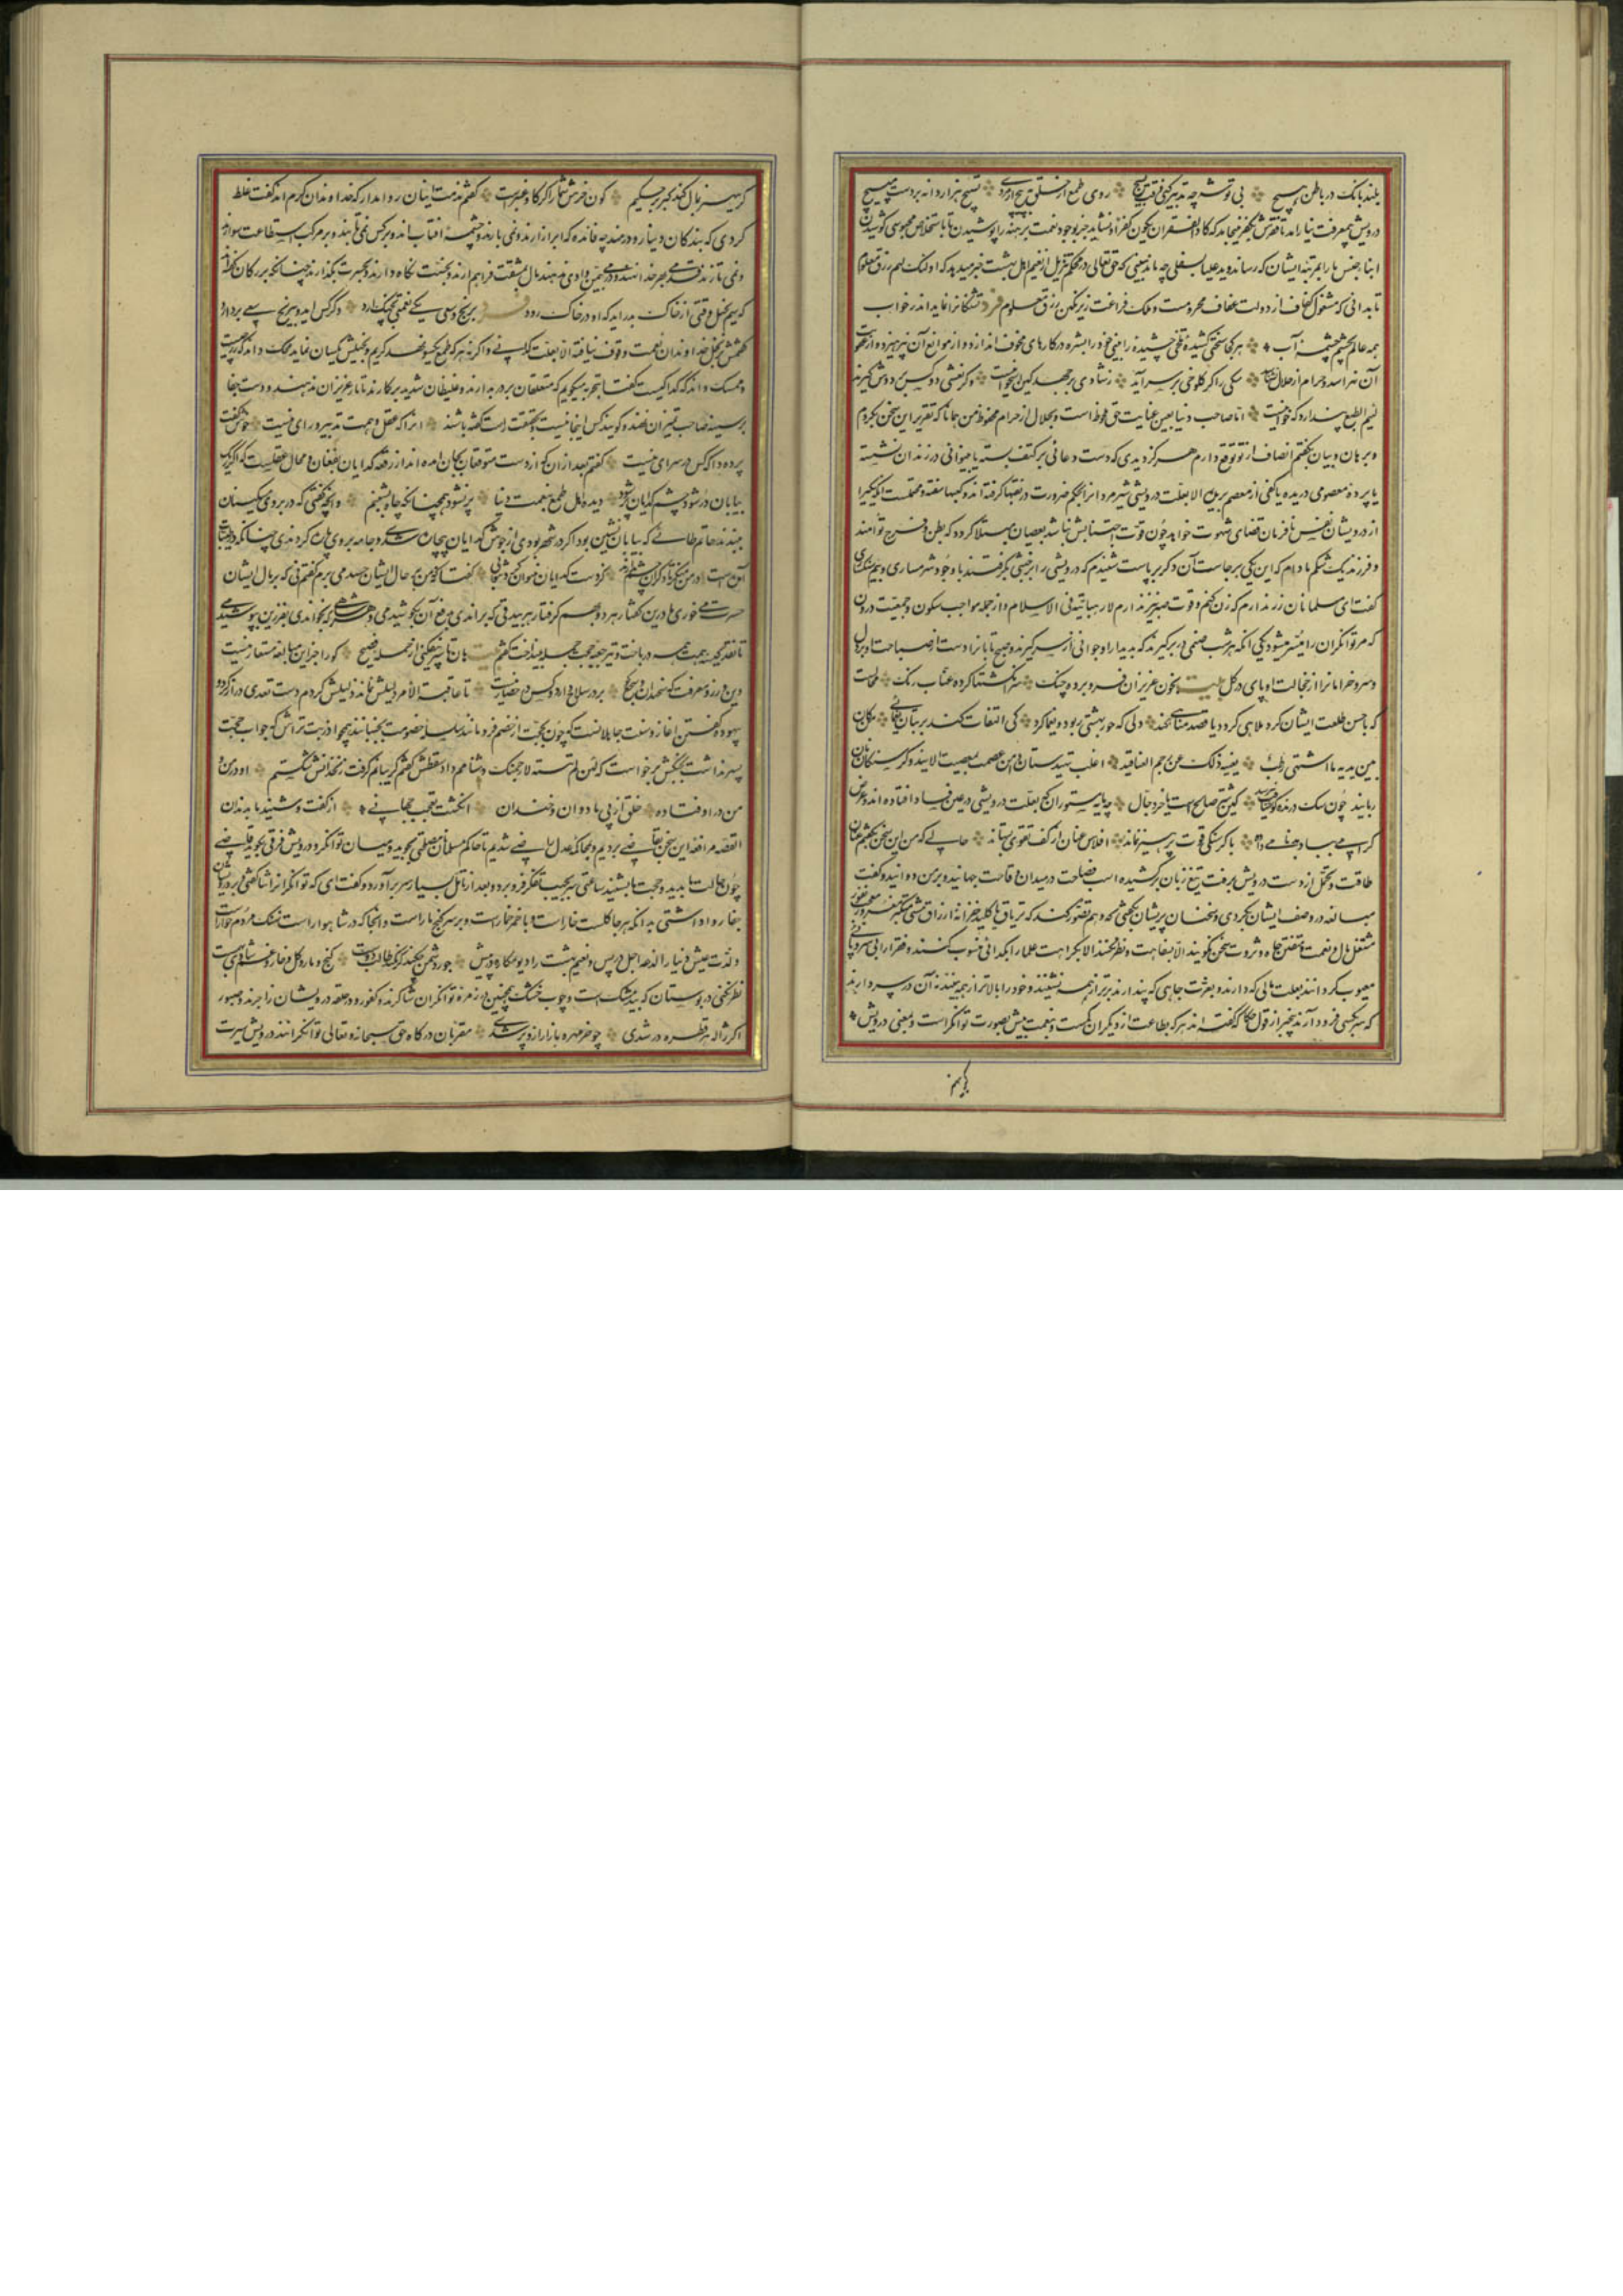 بلند بانک در باطن هیچ بی توشه چه تدبیر کنی وقت بسیچ روی طمع از خلق بپیچ ار مردی تسبیح هزار دانه بر دست مپیچ
درویش بی معرفت نیارامد تا فقرش بکفر نینجامد که کاد الفقر ان یکون کفرا و نشاید جز بوجود نعمت برهنه را پوشیدن یا باستخلاص محبوسی کوشیدن
ابنا جنس ما را بمرتبه ایشان که رساند و ید علیا بید سفلی چه ماند نبینی که حق تعالی در محکم تنزیل از نعیم اهل بهشت خبر میدهد که اولئک لهم رزق معلوم
تا بدانی که مشغول کفاف از دولت عفاف محرومست و ملک فراغت زیر نکین رزق معلوم فرد تشنکانرا نماید اندر خواب
همه عالم بچشم چشمه آب هر کجا سختی کشیده تلخی چشیده را بینی خود را بشره در کارهای مخوف اندازد و از توابع آن نپرهیزد و از عقوبت
آن نهراسد و حرام از حلال نشناسد سکی را کر کلوخی بر سر آید ز شادی برجهد کین استخوانست و کر نعشی دو کس بر دوش کیرند
لئیم الطبع پندارد که خوانیست اما صاحب دنیا بعین عنایت حق ملحوظ است و بحلال از حرام محفوظ من همانا که تقریر این سخن نکردم
و برهان و بیان نکفتم انصاف از تو توقع دارم هرکز دیدی که دست دعائی بر کتف بسته یا بینوائی در زندان نشسته
یا پرده معصومی دریده یا کفی از معصم بریده الا بعلت درویشی شیر مردانرا بحکم ضرورت در نقبها کرفته اند و کعبها سفته و محتملست آنکه یکی را
از درویشان نفس اماره فرمان قضای شهوت خواهد چون قوت احتسابش نباشد بعصیان مبتلا کردد که بطن و فرج توأمند
و فرزند یک شکم مادام که این یکی برجاست آن دکر برپاست شنیدم که درویشی را بر خبثی بکرفتند با وجود شرمساری و بیم سنکساری
کفت ای مسلمانان زر ندارم که زن کنم و قوت صبر نیز ندارم لا رهبانیة فی الاسلام و از جمله مواجب سکون و جمعیت درون
که مر توانکران را میسر میشود یکی آنکه هر شب صنمی در بر کیرند که بدیدار او جوانی از سر کیرند و صبح تابانرا دست از صباحت او بر دل
و سرو خرامانرا از خجالت او پای در کل بیت بخون عزیزان فرو برده چنک سر انکشتها کرده عناب رنک محالست
که با حسن طلعت ایشان کرد ملاهی کردد یا قصد مناهی کند دلی که حور بهشتی ربود و یغما کرد کی التفات کند بر بتان یغمائی من کان
بین یدیه ما اشتهی رطب یغنیه ذلک عن رجم العناقید اغلب تهیدستان دامن عصمت بمعصیت آلایند و کرسنکان نان
ربایند چون سک درنده کوشت یافت نپرسد کین شتر صالح است یا خر دجال چه مایه مستوران که بعلت درویشی در عین فساد افتاده اند و عرض
کرامی بباد بدنامی داده با کرسنکی قوت پرهیز نماند افلاس عنان از کف تقوی بستاند حالی که من این سخن بکفتم عنان
طاقت و تحمل از دست درویش برفت تیغ زبان برکشید و اسب فصاحت در میدان وقاحت جهانید و بر من دوانید و کفت
مبالغه در وصف ایشان بکردی و سخنهای پریشان بکفتی که وهم تصور کند که تریاقند یا کلید خزانه ارزاق مشتی متکبر مغرور معجب نفور
مشتغل مال و نعمت و مفتتن جاه و ثروت سخن نکویند الا بسفاهت و نظر نکنند الا بکراهت علما را بکدائی منسوب کنند و فقرا را بی سر و پائی
معیوب کردانند بعلت مالی که دارند و بعزت جاهی که پندارند برتر از همه نشینند و خود را بالاتر از همه بینند نه آن در سر دارند
که سر بکسی فرود آرند بیخبر از قول حکما که کفته اند هر که بطاعت از دیکران کمست و بنعمت بیش بصورت توانکر است و بمعنی درویش
کر بیهنر
کر بیهنر بمال کند کبر بر حکیم کون خرش شمار اکر کاو عنبرست کفتم مذمت اینان روا مدار که خداوندان کرم اند کفت غلط
کردی که بندکان دینارند و درم چه فائده که ابر آزارند و نمی بارند و چشمه آفتاب اند و بر کس نمی تابند و بر مرکب استطاعت سوارند
و نمی تازند قدمی بهر خدا ننهند و درمی بی من و اذی ندهند مال بمشقت فراهم آرند و بخست نکاه دارند و بحسرت بکذارند چنانکه بزرکان کفته اند
که سیم بخیل وقتی از خاک بدر آید که او در خاک رود فرد برنج و سعی کسی نعمتی بچنک آرد دکر کس آید و بیرنج و سعی بردارد
کفتمش بر بخل خداوندان نعمت وقوف نیافته الا بعلت کدائی و اکر نه هر که طمع یکسو نهد کریم و بخیلش یکسان نماید محک داند که زر چیست
و ممسک داند که کدا کیست کفتا بتجربه میکویم که متعلقان بر در بدارند و غلیظان شدید بر کارند تا بار عزیزان ندهند و دست جفا
بر سینه صاحب تمیزان نهند و کویند کس اینجا نیست و بحقیقت راست کفته باشند آنرا که عقل و همت و تدبیر و رای نیست خوش کفت
پرده دار که کس در سرای نیست کفتم بعد از آن که از دست متوقعان بجان آمده اند از رقعه کدایان بفغان و محال عقلست که اکر ریک
بیابان در شود چشم کدایان پر شود دیده اهل طمع بنعمت دنیا پر نشود همچنانکه چاه بشبنم و آنچه کفتی که در بر روی مسکینان
ببندند حاتم طائی که بیابان نشین بود اکر در شهر بودی از جوش کدایان بیچاره شدی و جامه برو پاره کردندی چنانکه در طیبات
آمدست در من منکر تا دکران چشم ندارند کز دست کدایان نتوان کرد ثوابی کفتا که من بر حال ایشان رحمت می برم کفتم نی که بر مال ایشان
حسرت می خوری ما درین کفتار هر دو بهم کرفتار هر بیدقی که براندی بدفع آن بکوشیدمی و هر شاهی که بخواندی بفرزین بپوشیدمی
تا نقد کیسه همت همه درباخت و تیر جعبه حجت همه بینداخت بیت هان تا سپر نیفکنی از حمله فصیح کو را جز این مبالغه مستعار نیست
دین ورز و معرفت که سخندان سجع کوی بر در سلاح دارد و کس در حصار نیست تا عاقبت الامر دلیلش نماند ذلیلش کردم دست تعدی دراز کرد و
بیهوده کفتن آغاز و سنت جاهلانست که چون بحجت از خصم فرو مانند سلسله خصومت بجنبانند همچو آذر بت تراش که جواب حجت
پسر نداشت بجنکش برخواست که لئن لم تنته لارجمنک دشنامم داد سقطش کفتم کریبانم کرفت زنخدانش شکستم او در من و
من در او فتاده خلق از پی ما دوان و خندان انکشت تعجب جهانی از کفت و شنید ما بدندان
القصه مرافعه این سخن بقاضی بردیم و بحکومت عدل راضی شدیم تا حاکم مسلمانان مصلحتی بجوید و میان توانکر و درویش فرقی بکوید قاضی
چون حالت ما بدید و حجت ما بشنید ساعتی سر بجیب تفکر فرو برد و بعد از تأمل بسیار سر برآورد و کفت ای که توانکرانرا ثنا کفتی و بر درویشان
جفا روا داشتی بدانکه هر جا که کلست خار است و با خمر خمار است و بر سر کنج مار است و آنجا که در شاهوار است نهنک مردم خوار است
و لذت عیش دنیا را لدغه اجل در پس و نعیم بهشت را دیوار مکاره در پیش جور دشمن چکند کر نکشد طالب دوست کنج و مار و کل و خار و غم و شادی بهمست
نظر نکنی در بوستان که بید مشک است و چوب خشک همچنین در زمره توانکران شاکرند و کفور و در حلقه درویشان زاجرند و صبور
اکر ژاله هر قطره در شدی چو خرمهره بازار از و پر شدی مقربان درکاه حق سبحانه و تعالی توانکرانند درویش سیرت